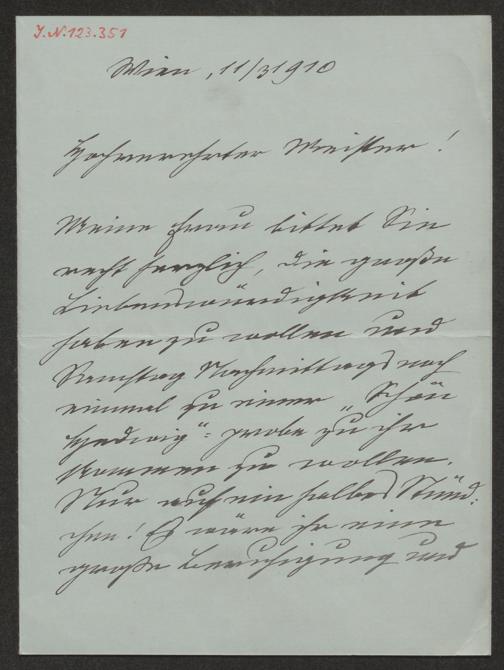 J.N.123.351
Wien, 11/3 1910
Hochverehrter Meister!
Meine Frau bittet Sie
recht herzlich, die große
Liebenswürdigkeit
haben zu wollen und
Samstag Nachmittags noch
einmal zu einer „Schön
Hedwig“=probe zu ihr
kommen zu wollen.
Nur auf ein halbes Stünd=
chen! Es wäre ihr eine
große Beruhigung und